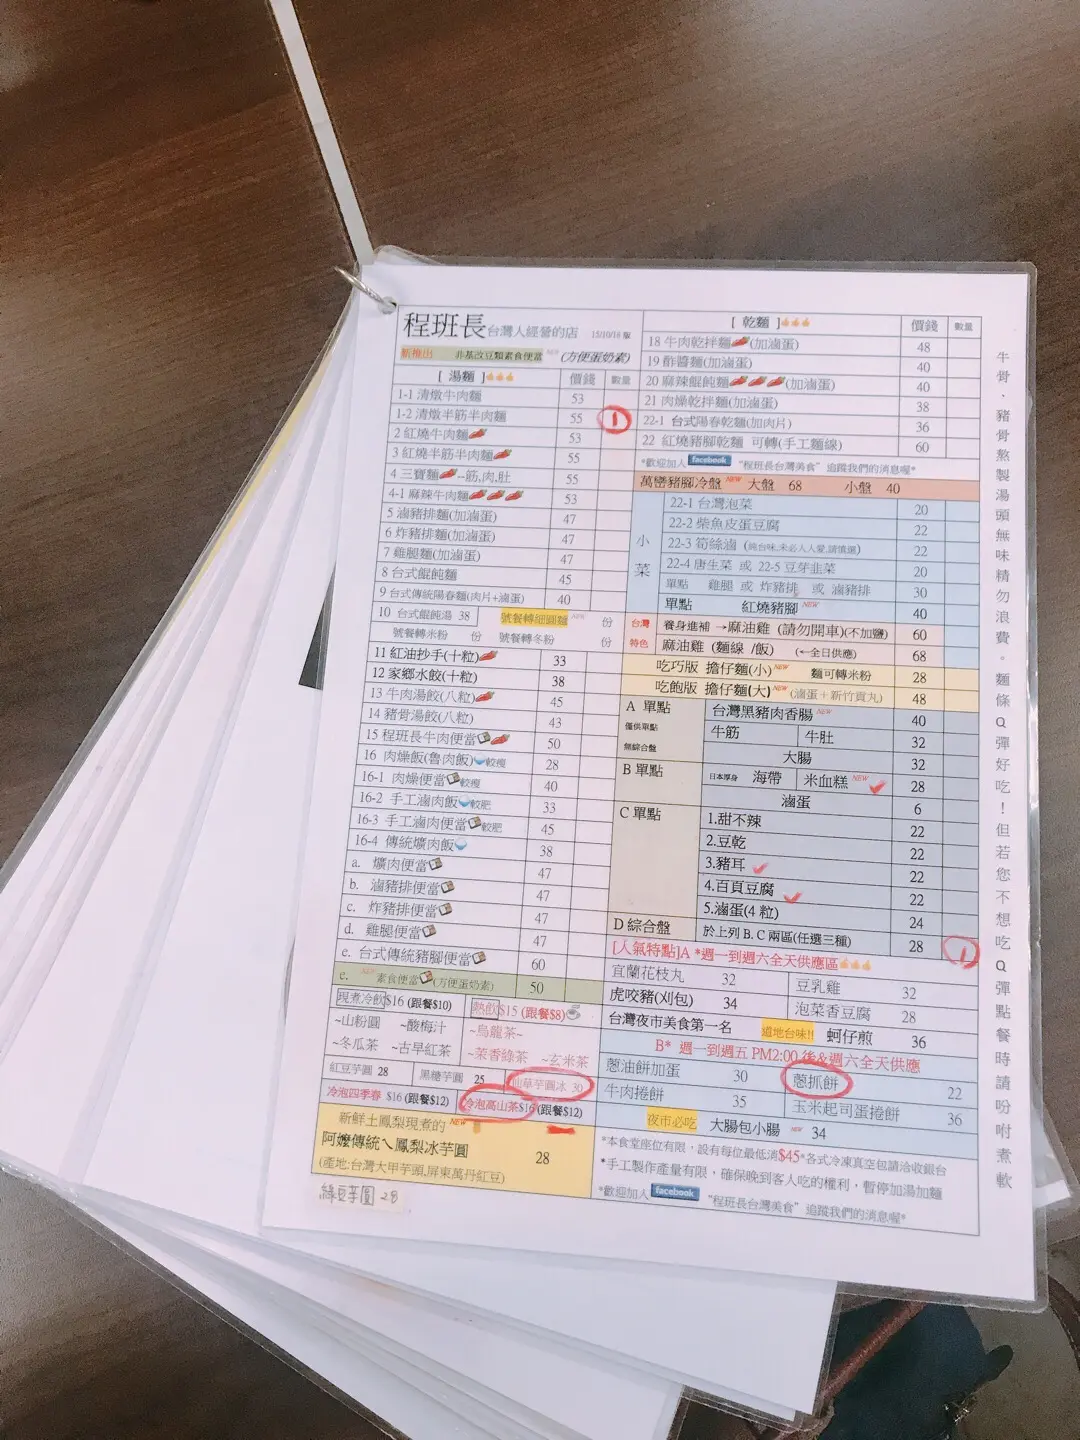 程班長台灣人經營的店 15/10/18 版
新推出 非基改豆類素食便當 NEW (方便蛋奶素)
[ 湯麵 ] 價錢 數量
1-1 清燉牛肉麵 53
1-2 清燉半筋半肉麵 55 1
2 紅燒牛肉麵 53
3 紅燒半筋半肉麵 55
4 三寶麵--筋,肉,肚 55
4-1 麻辣牛肉麵 53
5 滷豬排麵(加滷蛋) 47
6 炸豬排麵(加滷蛋) 47
7 雞腿麵(加滷蛋) 47
8 台式餛飩麵 45
9 台式傳統陽春麵(肉片+滷蛋) 40
10 台式餛飩湯 38 號餐轉細圓麵 份
號餐轉米粉 份 號餐轉冬粉 份
11 紅油抄手(十粒) 33
12 家鄉水餃(十粒) 38
13 牛肉湯餃(八粒) 45
14 豬骨湯餃(八粒) 43
15 程班長牛肉便當 50
16 肉燥飯(魯肉飯)較瘦 28
16-1 肉燥便當較瘦 40
16-2 手工滷肉飯較肥 33
16-3 手工滷肉便當較肥 45
16-4 傳統爌肉飯 38
a. 爌肉便當 47
b. 滷豬排便當 47
c. 炸豬排便當 47
d. 雞腿便當 47
e. 台式傳統豬腳便當 60
e. NEW 素食便當(方便蛋奶素) 50
現煮冷飲$16 (跟餐$10) 熱飲$15 (跟餐$8)
~山粉圓 ~酸梅汁 ~烏龍茶~
~冬瓜茶 ~古早紅茶 ~茉香綠茶 ~玄米茶
紅豆芋圓 28 黑糖芋圓 25 仙草芋圓冰 30
冷泡四季春 $16 (跟餐$12) 冷泡高山茶$16(跟餐$12)
新鮮土鳳梨現煮的 NEW
阿嬤傳統ㄟ鳳梨冰芋圓 28
(產地:台灣大甲芋頭,屏東萬丹紅豆)
綠豆芋圓 28
[ 乾麵 ] 價錢 數量
18 牛肉乾拌麵(加滷蛋) 48
19 酢醬麵(加滷蛋) 40
20 麻辣餛飩麵(加滷蛋) 40
21 肉燥乾拌麵(加滷蛋) 38
22-1 台式陽春乾麵(加肉片) 36
22 紅燒豬腳乾麵 可轉(手工麵線) 60
*歡迎加入 facebook “程班長台灣美食” 追蹤我們的消息喔*
萬巒豬腳冷盤 NEW 大盤 68 小盤 40
小菜
22-1 台灣泡菜 20
22-2 柴魚皮蛋豆腐 22
22-3 筍絲滷 (純台味,未必人人愛,請慎選) 22
22-4 唐生菜 或 22-5 豆芽韭菜 20
單點 雞腿 或 炸豬排 或 滷豬排 30
單點 紅燒豬腳 NEW 40
台灣 養身進補 →麻油雞 (請勿開車)(不加鹽) 60
特色 麻油雞 (麵線 /飯) (←全日供應) 68
吃巧版 擔仔麵(小) NEW 麵可轉米粉 28
吃飽版 擔仔麵(大) NEW (滷蛋+新竹貢丸) 48
A 單點 台灣黑豬肉香腸 NEW 40
僅供單點 牛筋 牛肚 32
無綜合盤 大腸 32
B 單點 日本厚身 海帶 米血糕 NEW 28
滷蛋 6
C 單點 1.甜不辣 22
2.豆乾 22
3.豬耳 22
4.百頁豆腐 22
5.滷蛋(4 粒) 24
D 綜合盤 於上列 B. C 兩區(任選三種) 28 1
[人氣特點]A *週一到週六全天供應區
宜蘭花枝丸 32 豆乳雞 32
虎咬豬(刈包) 34 泡菜香豆腐 28
台灣夜市美食第一名 道地台味!! 蚵仔煎 36
B* 週一到週五 PM2:00 後&週六全天供應
蔥油餅加蛋 30 蔥抓餅 22
牛肉捲餅 35 玉米起司蛋捲餅 36
夜市必吃 大腸包小腸 NEW 34
*本食堂座位有限,設有每位最低消$45*各式冷凍真空包請洽收銀台
*手工製作產量有限,確保晚到客人吃的權利,暫停加湯加麵
*歡迎加入 facebook “程班長台灣美食” 追蹤我們的消息喔*
牛骨.豬骨熬製湯頭無味精勿浪費。麵條Q彈好吃!但若您不想吃Q彈點餐時請吩咐煮軟